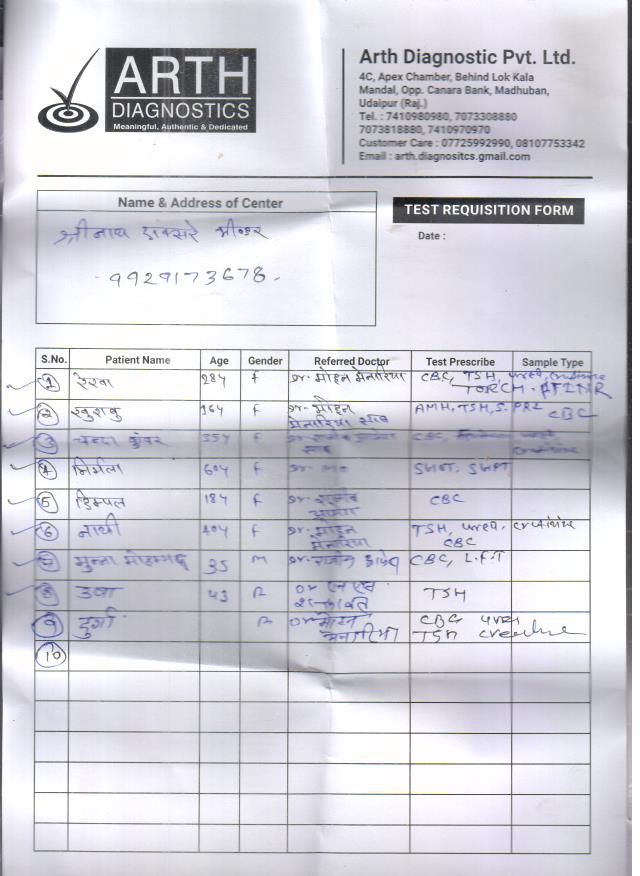 ARTH
DIAGNOSTICS
Meaningful, Authentic & Dedicated
Arth Diagnostic Pvt. Ltd.
4C, Apex Chamber, Behind Lok Kala
Mandal, Opp. Canara Bank, Madhuban,
Udaipur (Raj.)
Tel. : 7410980980, 7073308880
7073818880, 7410970970
Customer Care : 07725992990, 08107753342
Email : arth.diagnositcs.gmail.com
Name & Address of Center
श्रीनाथ
9929173678
TEST REQUISITION FORM
Date :
S.No. Patient Name Age Gender Referred Doctor Test Prescribe Sample Type
1 रेखा 28Y F Dr. मोहन मेनारिया CBC, TSH, urea, creatinine
TORCH
2 खुशबु 16Y F Dr. मोहन AMH, TSH, S. PRL
मेनारिया CBC
3 चन्दा कुंवर 35Y F CBC
4 निर्मला 60Y F SGOT. SGPT
5 डिम्पल 18Y F CBC
6 नाथी 40Y F Dr. मोहन TSH, urea, creatinine
मेनारिया CBC
7 मुन्ना मोहम्मद 35 M CBC, L.F.T
8 उषा 43 TSH
9 दुर्गा CBC urea
TSH
10